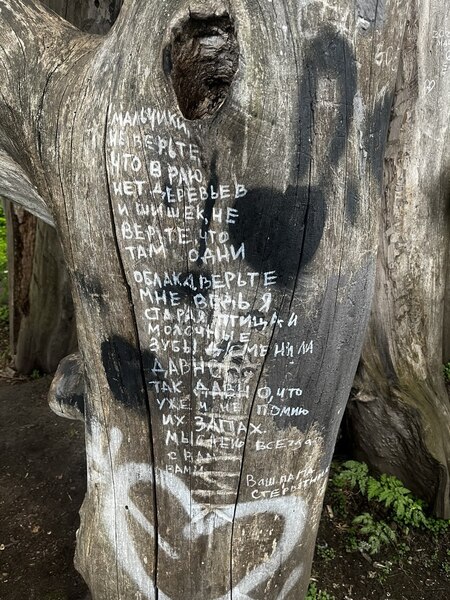 МАЛЬЧИКИ,
НЕ ВЕРЬТЕ,
ЧТО В РАЮ
НЕТ ДЕРЕВЬЕВ
И ШИШЕК, НЕ
ВЕРЬТЕ, ЧТО
ТАМ ОДНИ
ОБЛАКА, ВЕРЬТЕ
МНЕ ВЕДЬ Я
СТАРАЯ ПТИЦА И
МОЛОЧНЫЕ
ЗУБЫ Я СМЕНИЛИ
ДАВНО
ТАК ДАВНО, ЧТО
УЖЕ Я НЕ ПОМНЮ
ИХ ЗАПАХ.
МЫСЛЕНО ВСЕГДА
С ВА
ВАМИ
ВАШ ПАПА